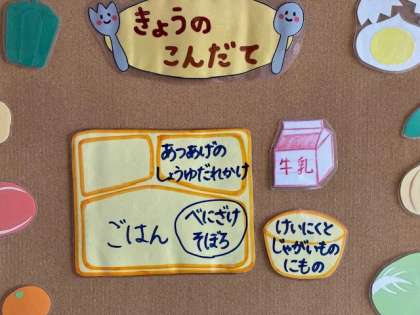 きょうの
こんだて
あつあげの
しょうゆだれかけ
牛乳
ごはん
べにざけ
そぼろ
けいにくと
じゃがいもの
にもの